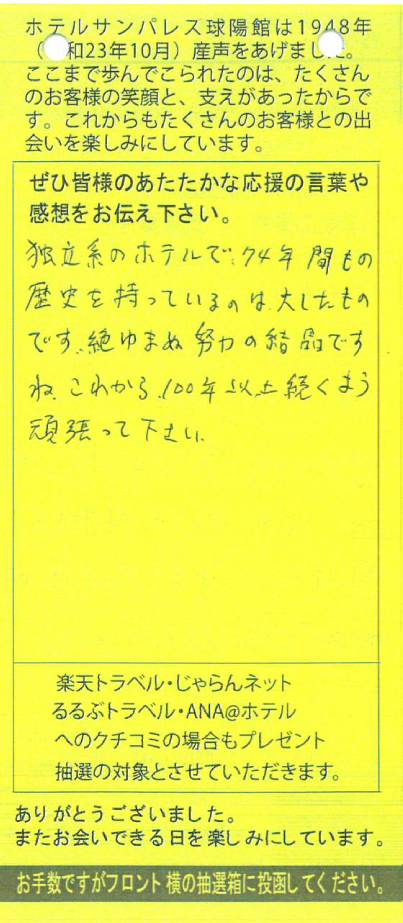 ホテルサンパレス球陽館は1948年
( 和23年10月）産声をあげました。
ここまで歩んでこられたのは、たくさん
のお客様の笑顔と、支えがあったからで
す。これからもたくさんのお客様との出
会いを楽しみにしています。
ぜひ皆様のあたたかな応援の言葉や
感想をお伝え下さい。
独立系のホテルで、74年間もの
歴史を持っているのは、大したもの
です。絶ゆまぬ努力の結晶です
ね。これから、100年以上続くよう
頑張って下さい。
楽天トラベル・じゃらんネット
るるぶトラベル・ANA@ホテル
へのクチコミの場合もプレゼント
抽選の対象とさせていただきます。
ありがとうございました。
またお会いできる日を楽しみにしています。
お手数ですがフロント横の抽選箱に投函してください。